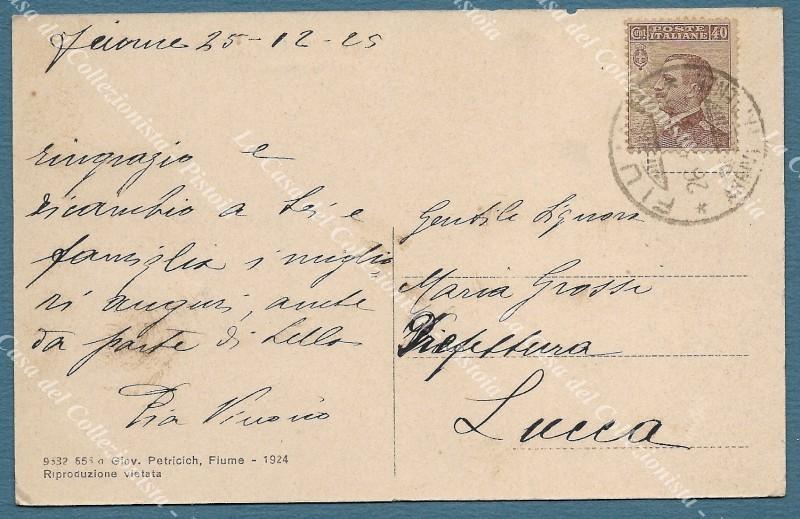 Fiume 25-12-25
ringrazio e
ricambio a Lei e
famiglia i miglio
ri auguri, anche
da parte di Lello
Pia
9532 555 a Giov. Petricich, Fiume - 1924
Riproduzione vietata
Cent. POSTE ITALIANE 40
FIU
Gentile Signora
Maria Grossi
Prefettura
Lucca
La Casa del Collezionista - Pistoia